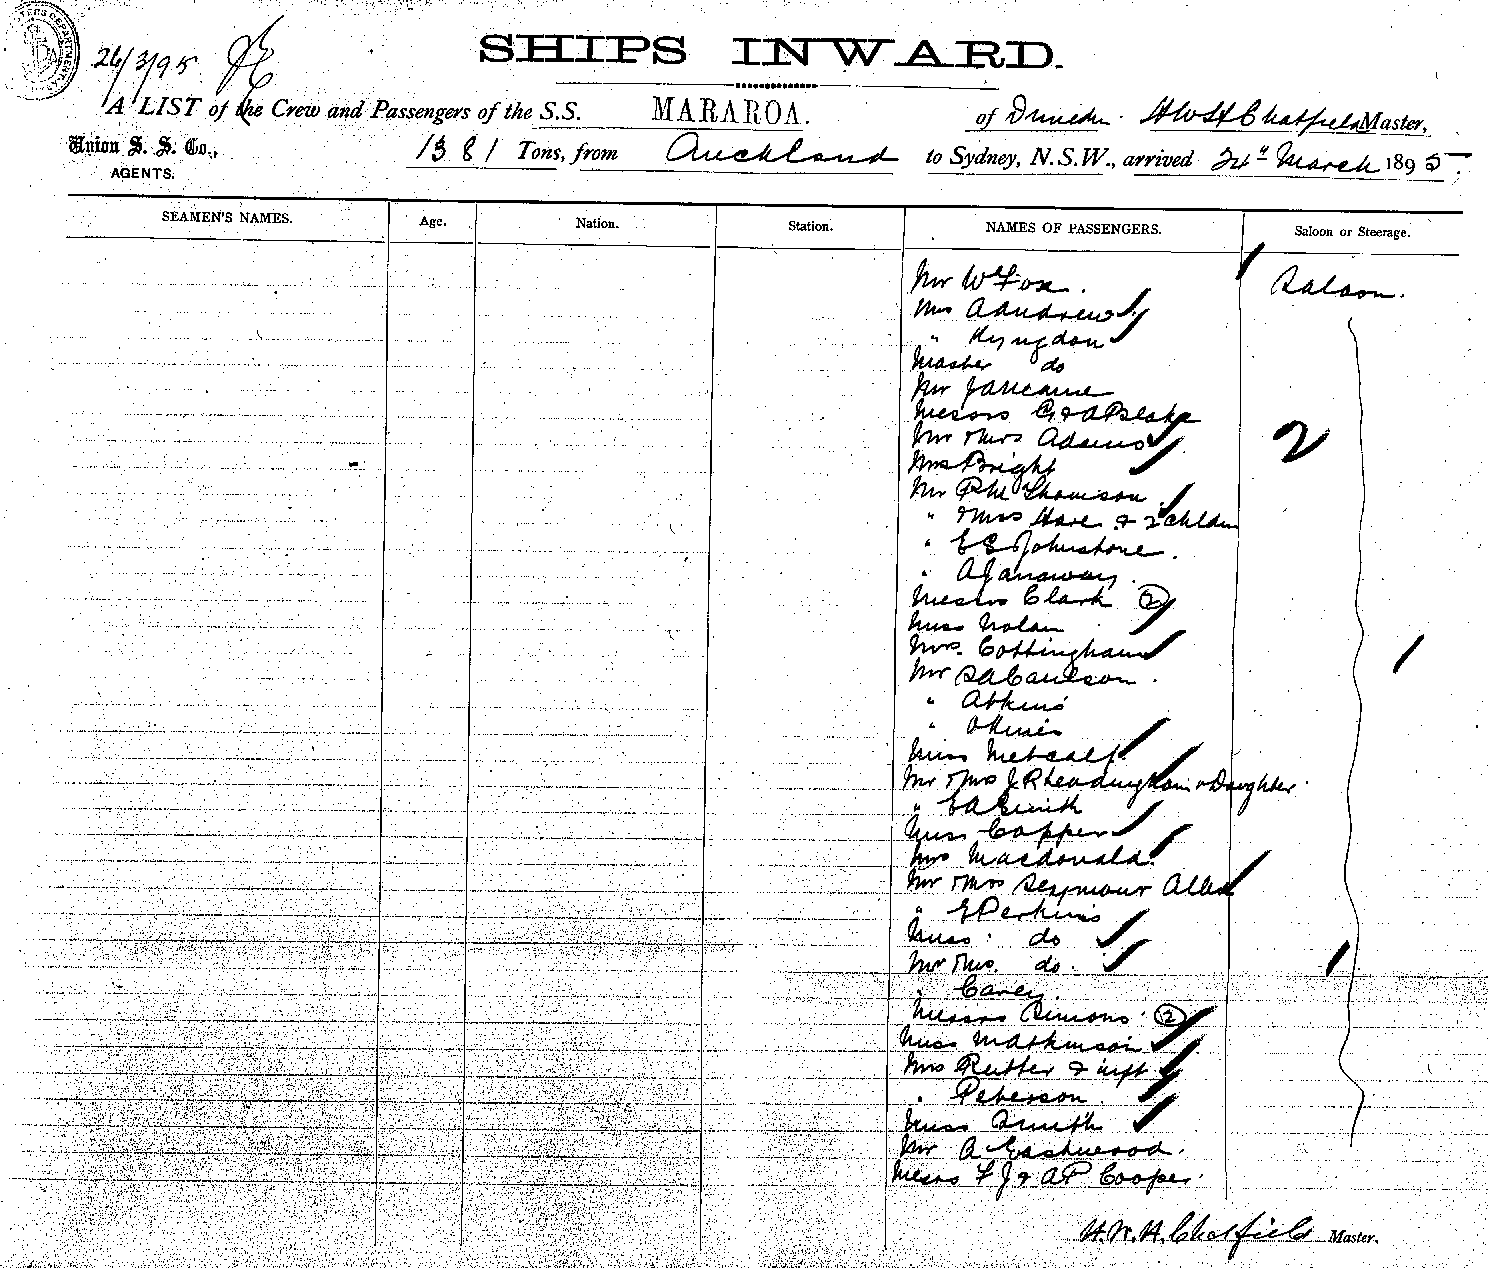 26/3/95
SHIPS INWARD.
A LIST of the Crew and Passengers of the S.S. MARAROA. of Dunedin. H W H Chatfield Master,
Union S. S. Co.,
AGENTS.
1381 Tons, from Auckland to Sydney, N.S.W., arrived 24" March 1895.
SEAMEN'S NAMES. Age. Nation. Station. NAMES OF PASSENGERS. Saloon or Steerage.
Mr Wm Fox. Saloon.
Mrs A Andrews
" Kyngdon
Master do
Mr
Messrs G & A Blake
Mr & Mrs Adams 2
Mrs Bright
Mr Thomson
" & Mrs Hare & 2 children
" E E Johnstone.
" A Janaway.
Messrs Clark 2
Miss Nolan
Mrs. Cottingham
Mr Caulson.
" Atkins
"
Miss Metcalf
Mr & Mrs J R Headingham & Daughter.
" E A Smith
Miss Copper
Mrs Macdonald.
Mr & Mrs Seymour Allan
" E Perkins
Miss. do
Mr & Mrs. do.
" Carey.
Messrs Simons. 2
Miss M Atkinson
Mrs Rutter & inft
" Peterson.
Miss Smith
Mr A Eastwood.
Messrs F J & A P Cooper.
H. W. H. Chatfield Master.